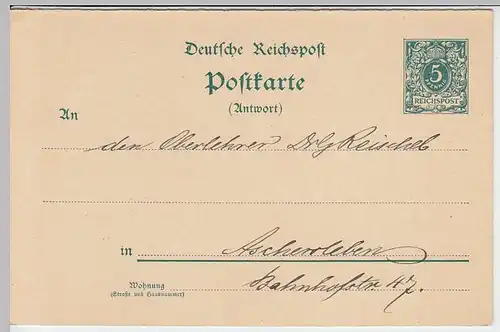 Deutsche Reichspost
Postkarte
(Antwort)
5
REICHSPOST
An
den Oberlehrer Dr G Reischel
in Aschersleben
Wohnung
(Straße und Hausnummer)
Bahnhofstr 47.